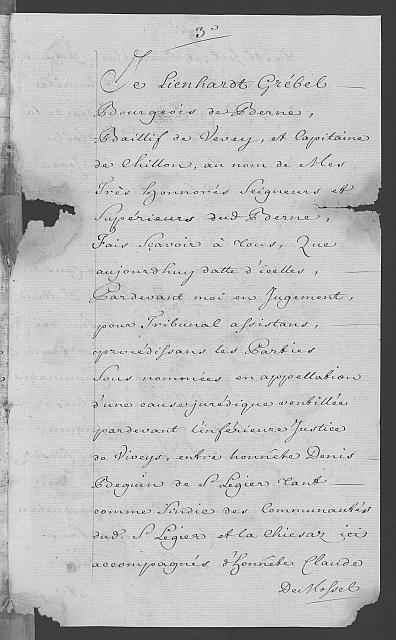 3°
Je Lienhardt Grébel
Bourgeois de Berne,
Baillif de Vevey, et Capitaine
de Chillon, au nom de Mes
Très honnorés Seigneurs et
Supérieurs dud. Berne,
Fais Sçavoir à tous, Que
aujourdhuy datte d'icelles,
Pardevant moi en Jugement,
pour Tribunal assistans,
les Parties
Sous nommées en appellation
d'une cause jurédique ventillée
pardevant l'inférieure Justice
de Viveys, entre honnête Denis
Béguin de St. Légier tant
comme Sindic des Communautés
dud. St. Légier et la Chiesaz ici
accompagnés d'honnête Claude
De Mossel